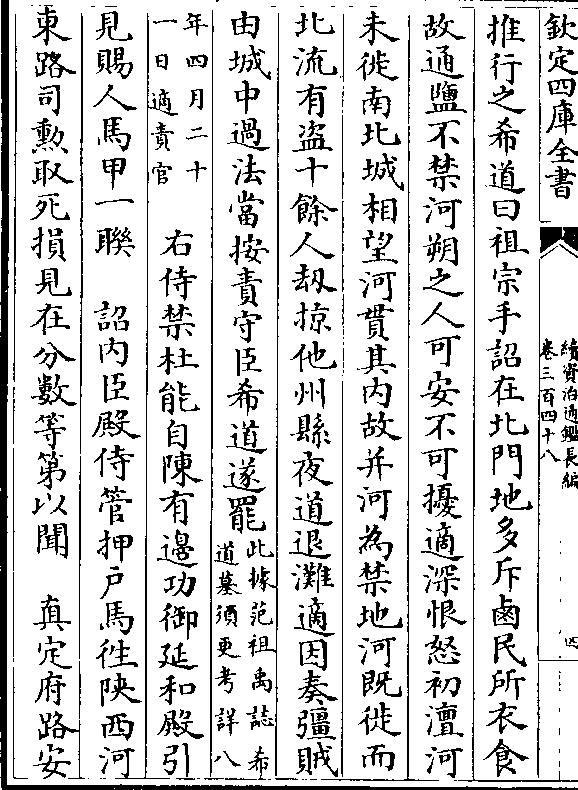 欽定四庫全書
續資治通鑑長編
卷三百四十八
四
推行之希道曰祖宗手詔在北門地多斥鹵民所衣食
故通鹽不禁河朔之人可安不可擾適深恨怒初澶河
未徙南北城相望河貫其内故并河為禁地河既徙而
北流有盗十餘人刼掠他州縣夜道退灘適因奏彊賊
由城中過法當按責守臣希道遂罷此據范祖禹誌希
道墓須更考詳八
年四月二十
一日適責官
右侍禁杜能自陳有邊功御延和殿引
見賜人馬甲一聨 詔内臣殿侍管押户馬徃陝西河
東路司勲取死損見在分數等第以聞 真定府路安